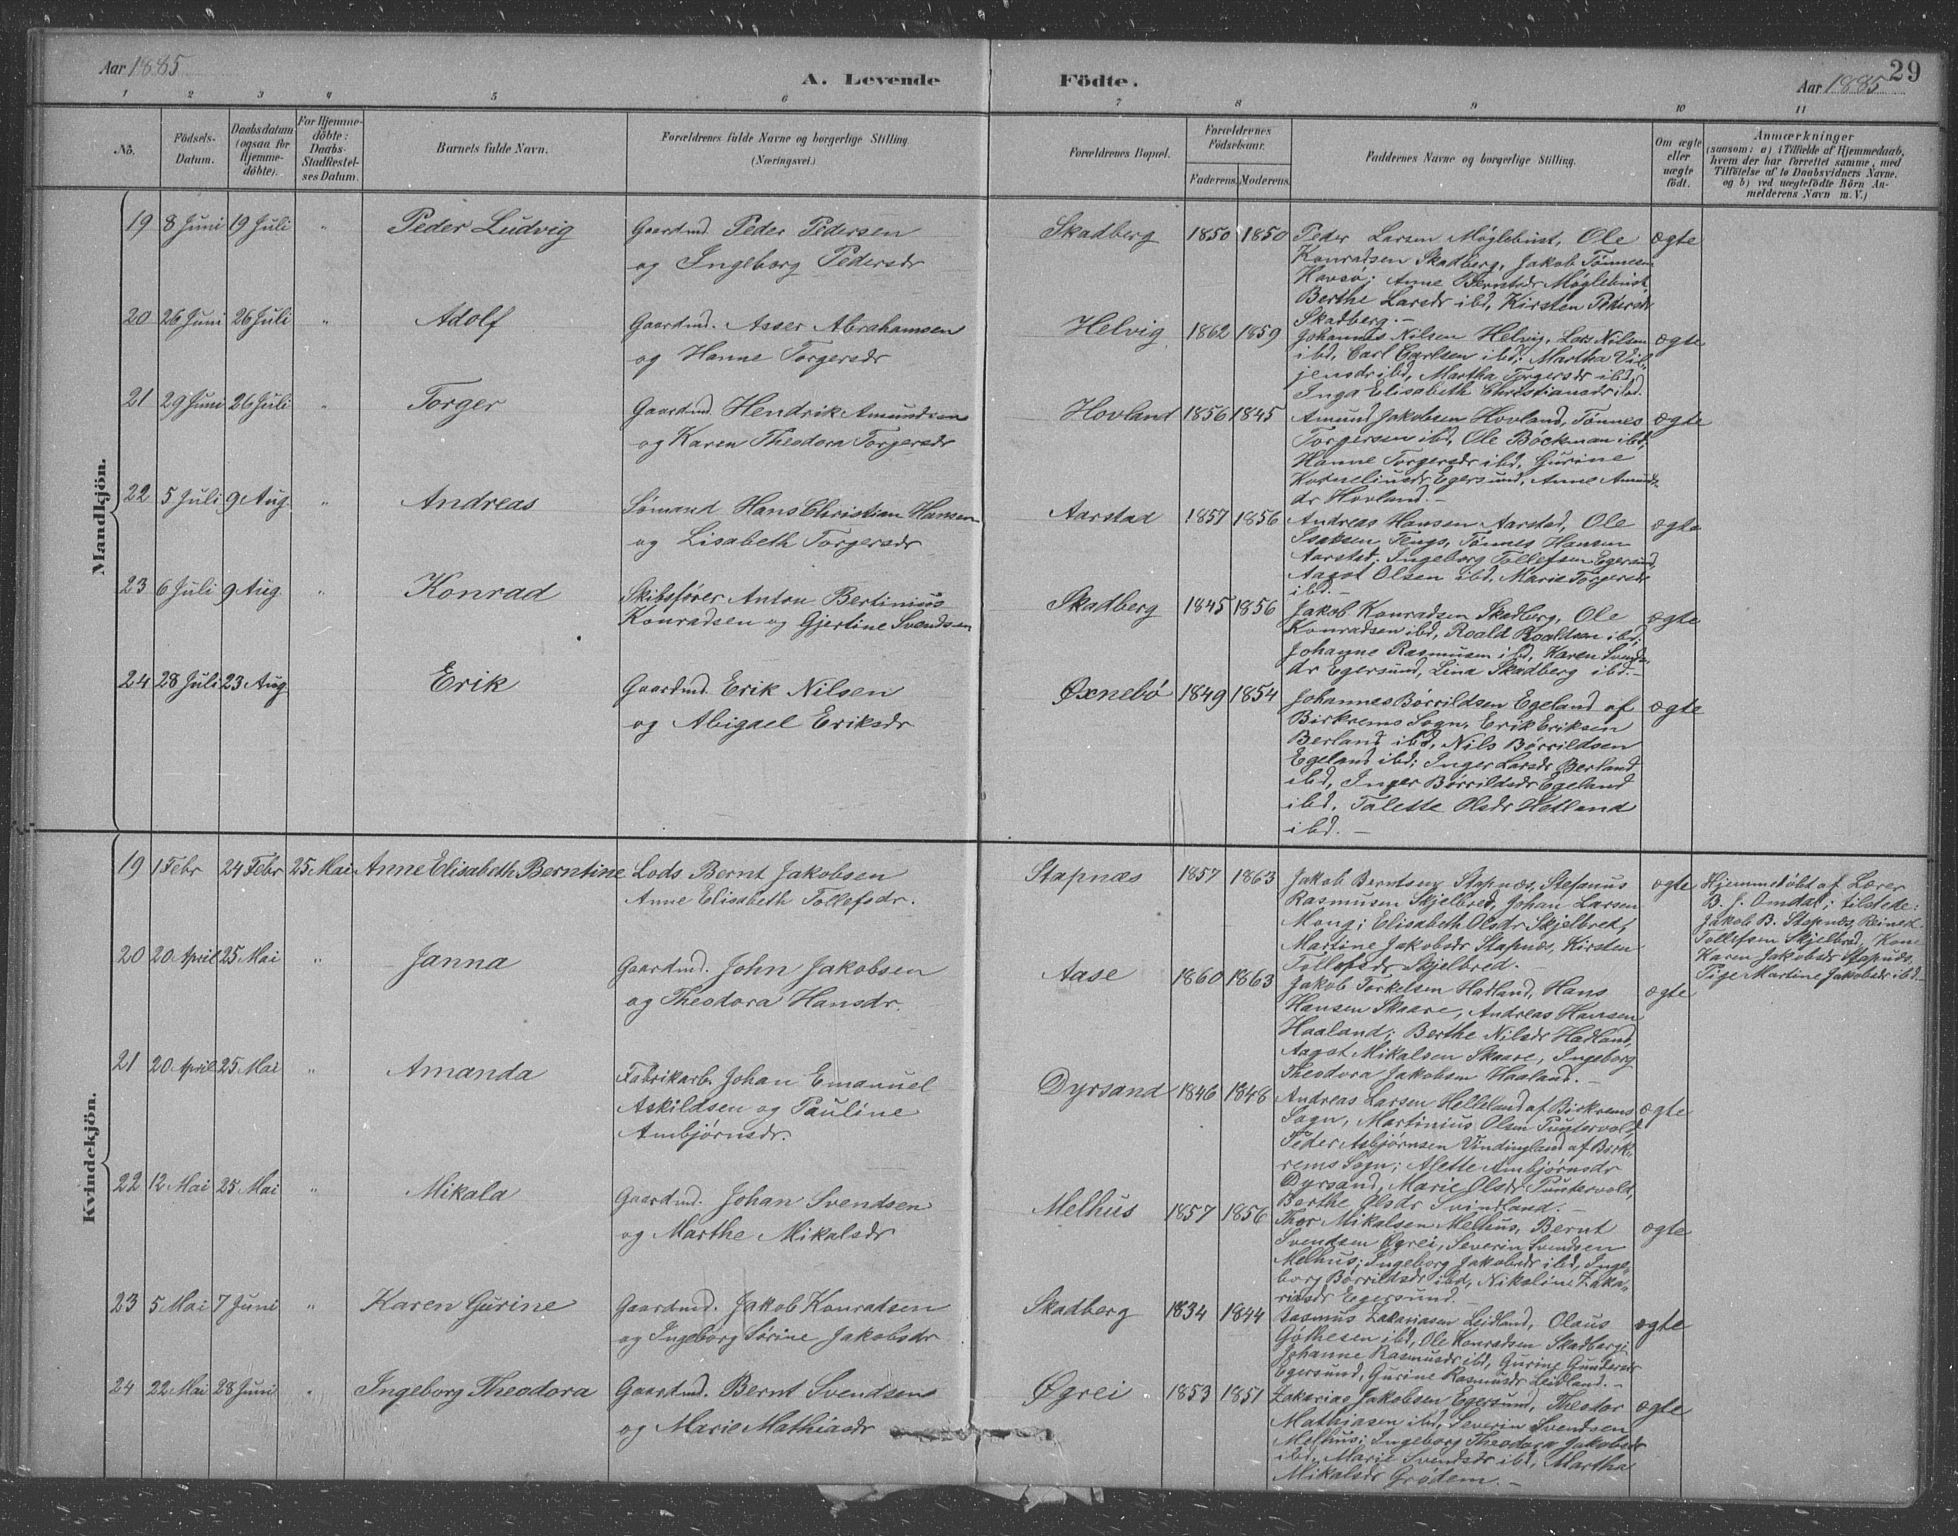 Aar 1885
A. Levende Födte.
29
Aar 1885
1 2 3 4 5 6 7 8 9 10 11
No.
Födsels-Datum.
Daabsdatum (ogsaa for Hjemme-döbte).
For Hjemme-döbte: Daabs-Stadfæstel-ses Datum.
Barnets fulde Navn.
Forældrenes fulde Navne og borgerlige Stilling (Næringsvei.)
Forældrenes Bopæl.
Forældrenes Födselsaar.
Faderens. Moderens.
Faddernes Navne og borgerlige Stilling.
Om ægte eller uægte födt.
Anmærkninger
(saasom: a) i Tilfælde af Hjemmedaab, hvem der har forrettet samme, med Tilföielse af to Daabsvidners Navne, og b) ved uægtefödte Börn An-melderens Navn m. V.)
Mandkjön.
19 8 Juni 19 Juli " Peder Ludvig
Gaardmd. Peder Pedersen
og Ingeborg Pedersdr
Skadberg 1850 1850
Peder Larsen Møglebust, Ole
Konradsen Skadberg, Jakob Tønnesen
Havsø; Anne Berntsdr Møglebust
Berthe Larsdr ibd, Kirsten Pedersdr
Skadberg.-
ægte
20 26 Juni 26 Juli " Adolf
Gaardmd. Asser Abrahamsen
og Hanne Torgersdr
Helvig 1862 1859
Johannes Nilsen Helvig, Lars Nilsen
ibd, Carl Carlsen ibd; Martha Vil-
jensdr ibd, Martha Torgersdr ibd,
Inga Elisabeth Christiansdr ibd.
ægte
21 29 Juni 26 Juli " Torger
Gaardmd. Hendrik Amundsen
og Karen Theodora Torgersdr
Hovland 1856 1845
Amund Jakobsen Hovland, Tønnes
Torgersen ibd, Ole Bøckman ibd,
Hanne Torgersdr ibd, Gurine
Korneliusdr Egersund, Anne Amunds-
dr Hovland.-
ægte
22 5 Juli 9 Aug. " Andreas
Sømand Hans Christian Hansen
og Lisabeth Torgersdr
Aarstad 1857 1856
Andreas Hansen Aarstad, Ole
Isaksen Tengs, Tønnes Hansen
Aarstad; Ingeborg Tollefsen Egersund,
Aagot Olsen ibd, Marie Torgersdr
ibd.-
ægte
23 6 Juli 9 Aug. " Konrad
Skibsfører Anton Bertinius
Konradsen og Gjertine Svendsen
Skadberg 1845 1856
Jakob Konradsen Skadberg, Ole
Konradsen ibd, Roald Roaldsen ibd;
Johanne Rasmusen ibd, Karen Svends-
dr Egersund, Lina Skadberg ibd.-
ægte
24 28 Juli 23 Aug. Erik
Gaardmd. Erik Nilsen
og Abigael Eriksdr
Øxnebø 1849 1854
Johannes Børrildsen Egeland af
Birkrems Sogn, Erik Eriksen
Berland ibd, Nils Børrildsen
Egeland ibd; Inger Larsdr Berland
ibd, Inger Børrildsdr Egeland
ibd, Talette Olsdr Hotland
ibd.-
ægte
Kvindekjön.
19 1 Febr 24 Febr 25 Mai Anne Elisabeth Berntine
Lods Bernt Jakobsen
Anne Elisabeth Tollefsdr.
Stapnæs 1857 1863
Jakob Berntsen Stapnæs, Stefanus
Rasmusen Skjelbred, Johan Larsen
Mong; Elisabeth Olsdr Skjelbred,
Martine Jakobsdr Stapnæs, Kirsten
Tollefsdr Skjelbred.-
ægte
Hjemmedøbt af Lærer
B. J. Omdal; tilstede:
Jakob B. Stapnæs, Reinert
Tollefsen Skjelbred, Kone
Karen Jakobsdr Stapnæs,
Pige Martine Jakobsdr ibd.-
20 20 April 25 Mai " Janna
Gaardmd. John Jakobsen
og Theodora Hansdr.
Aase 1860 1863
Jakob Torkelsen Hadland, Hans
Hansen Skaare, Andreas Hansen
Haaland; Berthe Nilsdr Hadland,
Aagot Mikalsen Skaare, Ingeborg
Theodora Jakobsen Haaland.-
ægte
21 20 April 25 Mai " Amanda
Fabrikarb. Johan Emanuel
Askildsen og Pauline
Ambjørnsdr.
Dyrsand 1846 1848
Andreas Larsen Helleland af Birkrems
Sogn, Martinius Olsen Puntervold,
Peder Asbjørnsen Vindingland af Birk-
rems Sogn; Alette Ambjørnsdr
Dyrsand, Marie Olsdr Puntervold,
Berthe Olsdr Svindland.-
ægte
22 12 Mai 25 Mai " Mikala
Gaardmd. Johan Svendsen
og Marthe Mikalsdr
Melhus 1857 1856
Thor Mikalsen Melhus, Bernt
Svendsen Øgrei, Severin Svendsen
Melhus; Ingeborg Jakobsdr ibd, Inge-
borg Børrildsdr ibd, Nikoline Zaka-
riasdr Egersund.-
ægte
23 5 Mai 7 Juni " Karen Gurine
Gaardmd. Jakob Konradsen
og Ingeborg Sørine Jakobsdr
Skadberg 1834 1844
Rasmus Zakariasen Leidland, Olaus
Gøthesen ibd, Ole Konradsen Skadberg;
Johanne Rasmusdr ibd, Gurine Gundersdr
Egersund, Gurine Rasmusdr Leidland.-
ægte
24 22 Mai 28 Juni " Ingeborg Theodora
Gaardmd. Bernt Svendsen
og Marie Mathiasdr
Øgrei 1853 1851
Zakarias Jakobsen Egersund, Theodor
Mathiasen ibd, Severin Svendsen
Melhus; Ingeborg Theodora Jakobsdr
ibd, Marie Svendsdr ibd, Martha
Mikalsdr Grødem.-
ægte